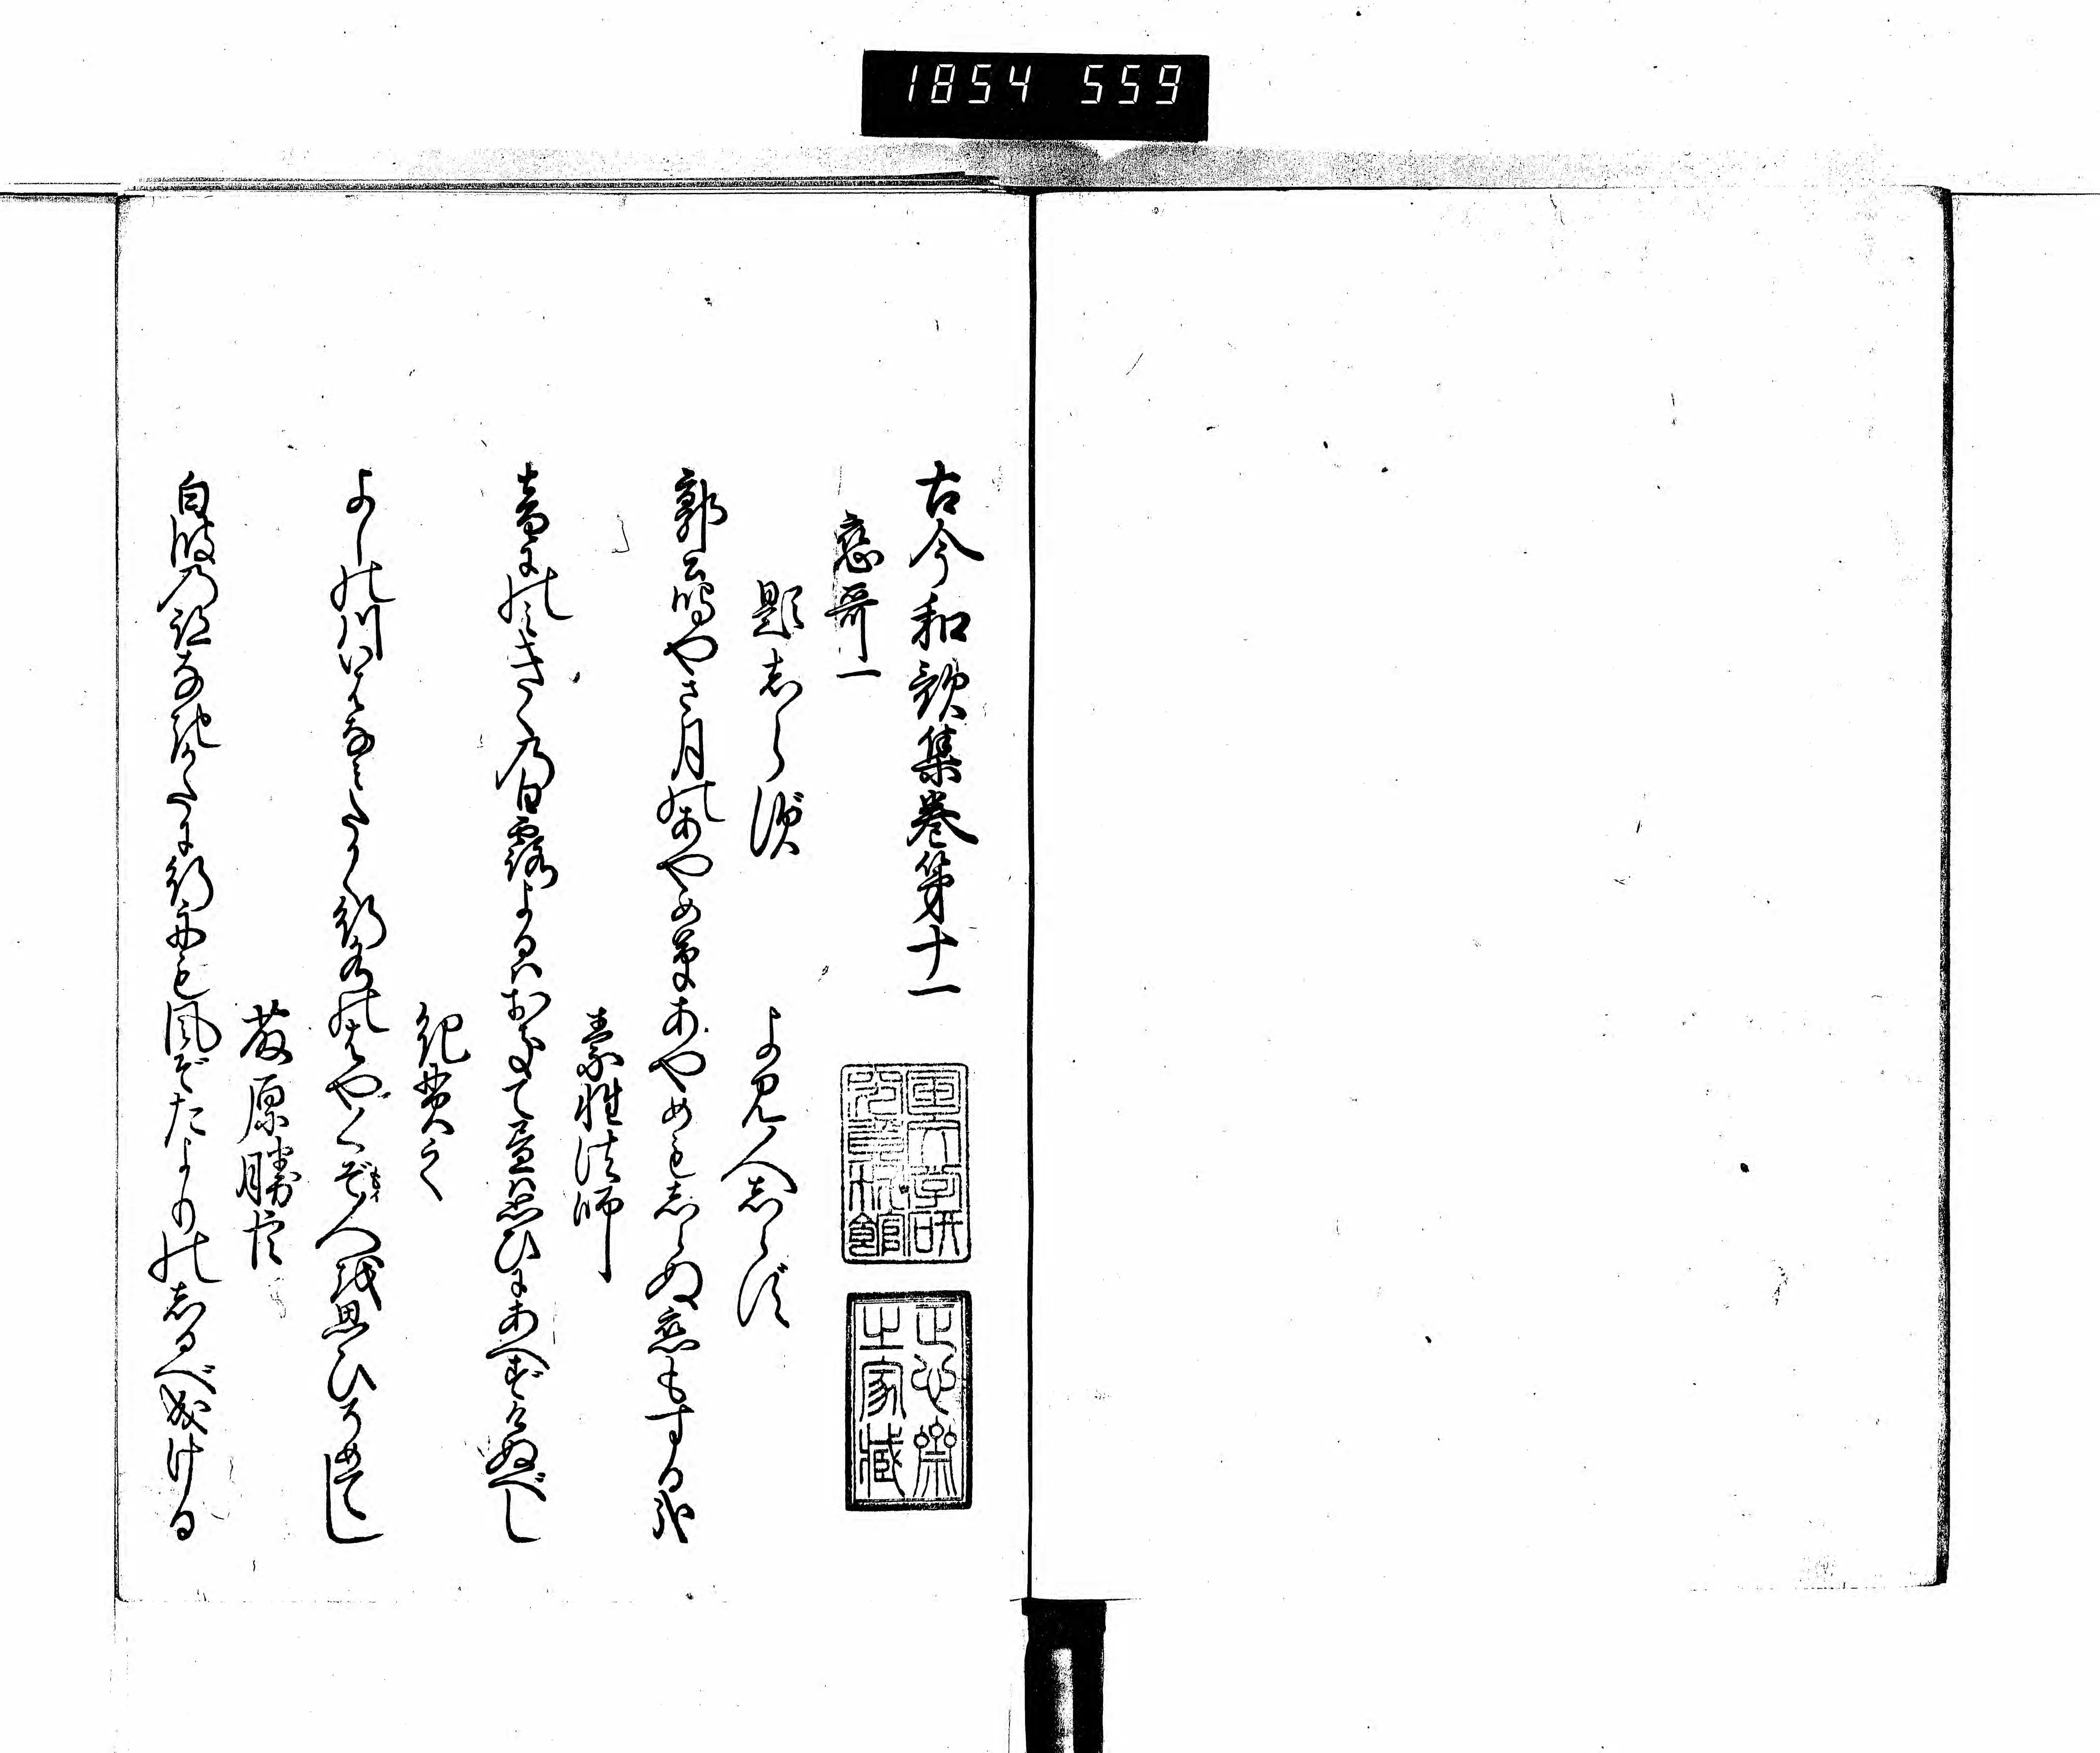 1854 559
古今和歌集巻第十一
恋哥一
題志らず
よみ人志らず
郭公鳴やさ月のあやめ草あやめも志らぬ恋もする哉
素性法師
音にのミきくの白露よるハおきて昼ハ思ひにあへずけぬべし
紀貫之
よしの川いはなミたかく行水のはやくぞ人を思ひそめてし
藤原勝臣
白波の跡なきかたに行舟も風ぞたよりの志るべ成ける
正心楽
之家蔵